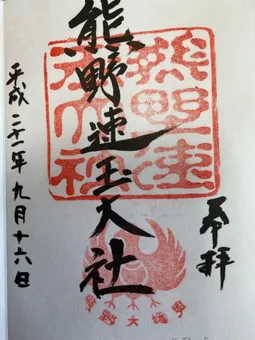 奉拝
熊野速玉大社
熊野速
玉大社
熊野大権現
平成二十一年九月十六日